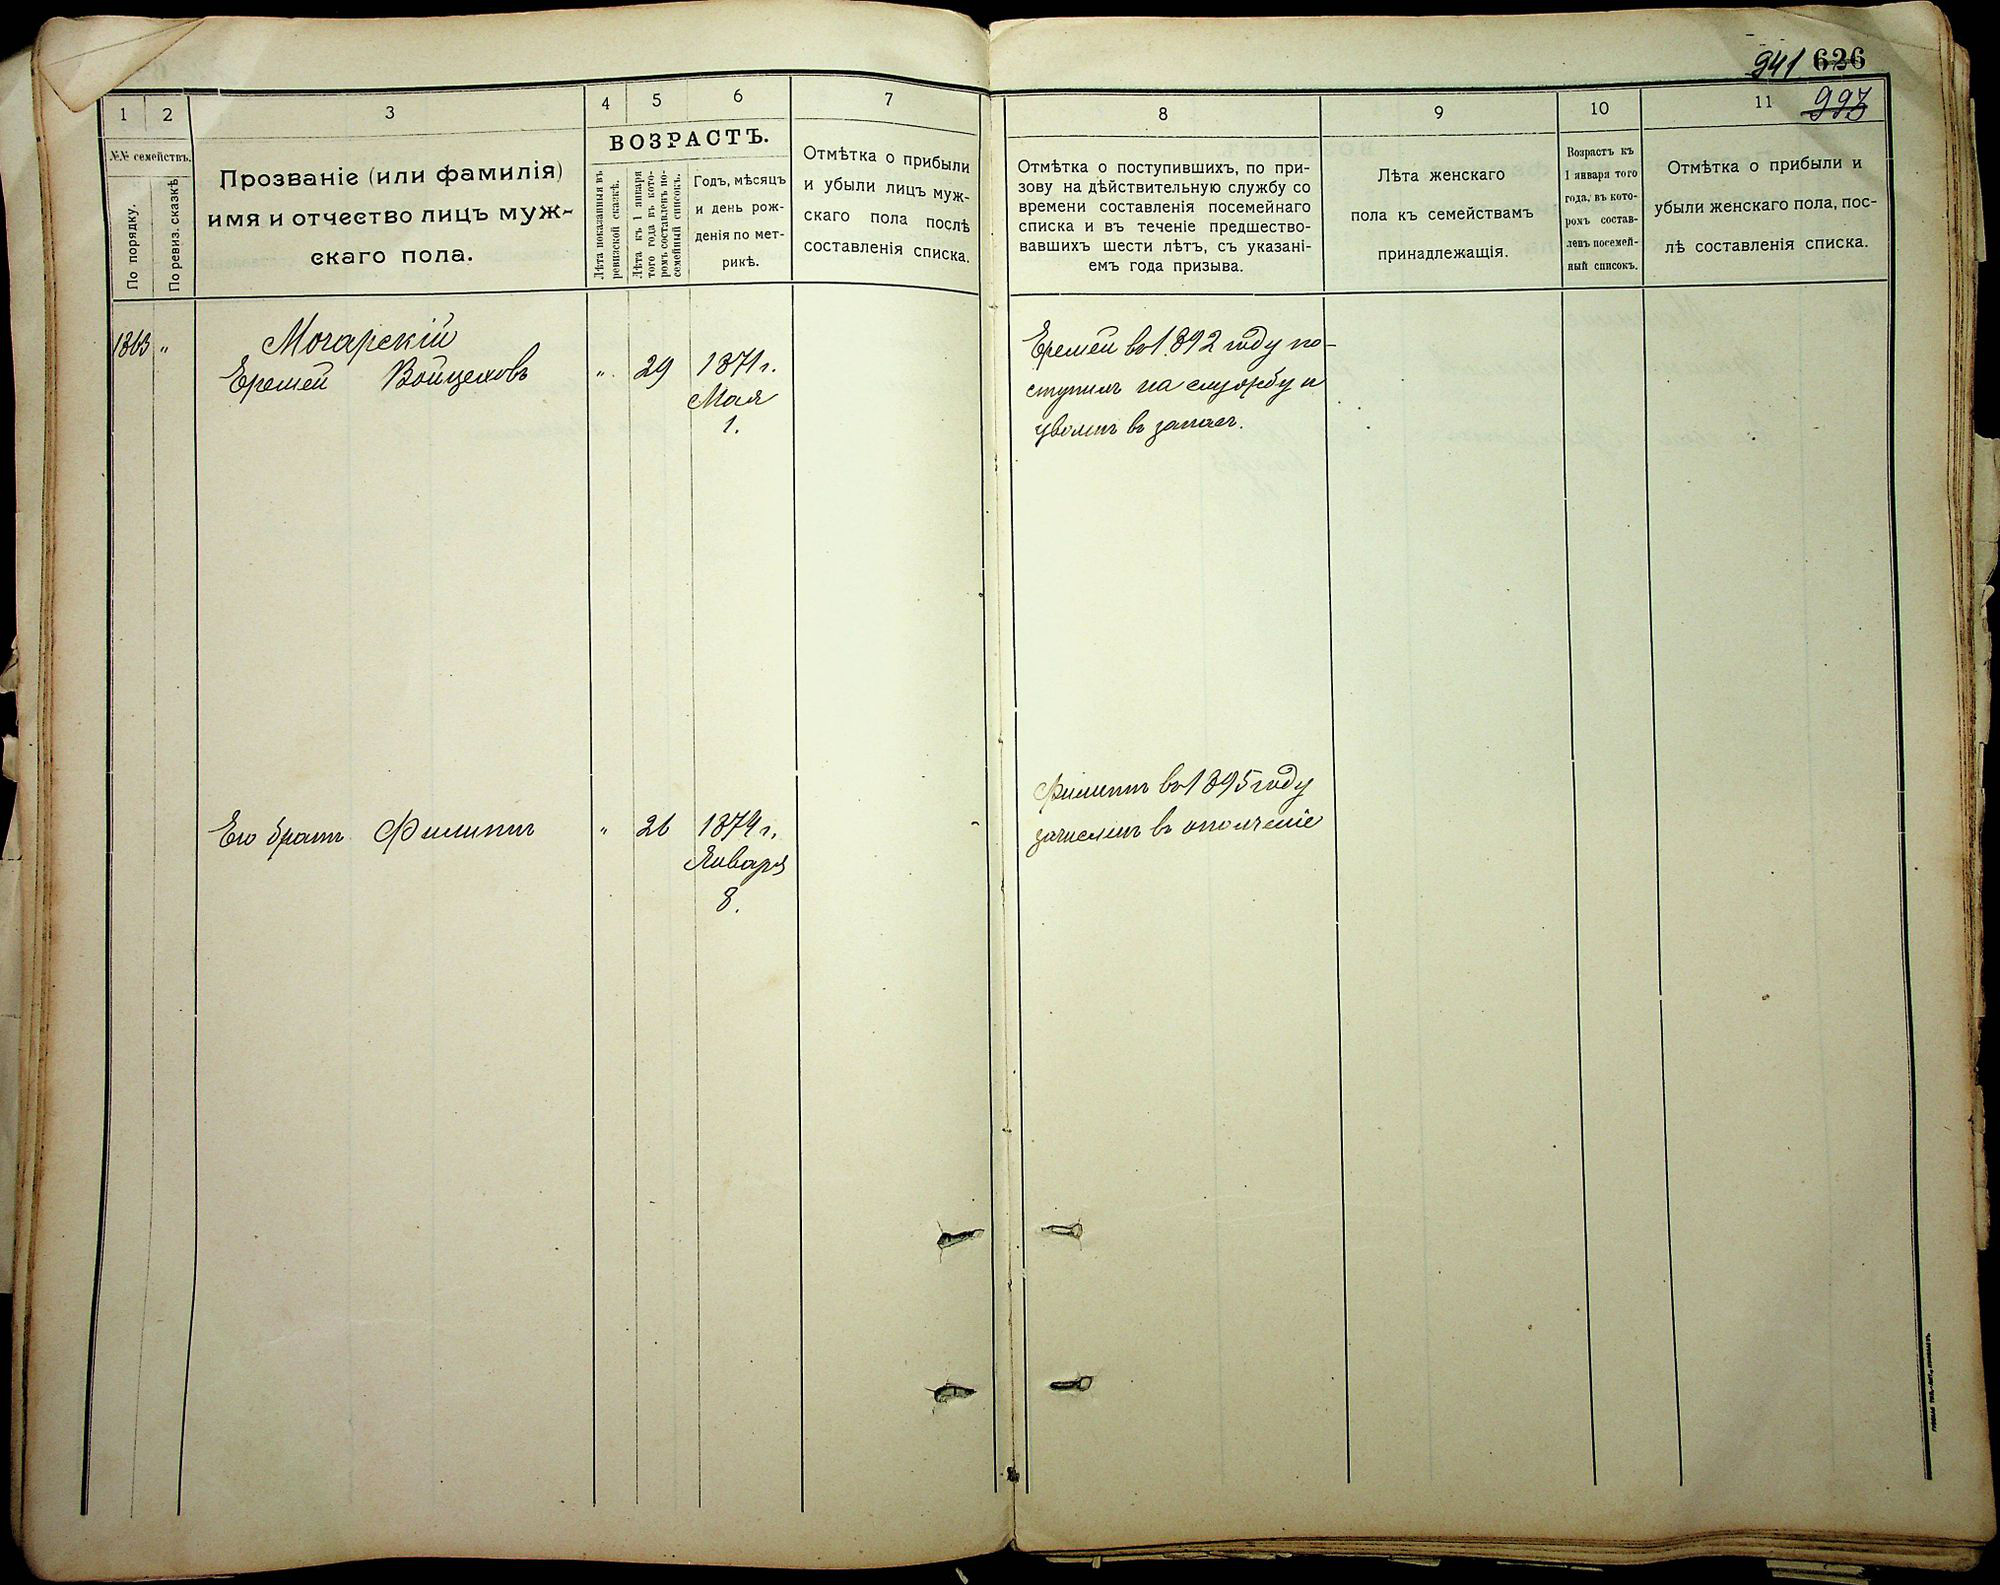 941 626
993
1
2
3
4
5
6
7
№№ семействъ.
По порядку.
По ревиз. сказкѣ.
Прозваніе (или фамилія)
имя и отчество лицъ муж-
скаго пола.
ВОЗРАСТЪ.
Лѣта показанныя въ
ревизской сказкѣ.
Лѣта къ 1 января
того года въ кото-
ромъ составленъ по-
семейный списокъ.
Годъ, мѣсяцъ
и день рож-
денія по мет-
рикѣ.
Отмѣтка о прибыли
и убыли лицъ муж-
скаго пола послѣ
составленія списка.
1363 "
Мочарскій
Еремей Войцеховъ
" 29 1871 г.
Мая
1.
Его братъ Филиппъ
" 26 1874 г.
Января
8.
8
9
10
11
Отмѣтка о поступившихъ, по при-
зову на дѣйствительную службу со
времени составленія посемейнаго
списка и въ теченіе предшество-
вавшихъ шести лѣтъ, съ указані-
емъ года призыва.
Лѣта женскаго
пола къ семействамъ
принадлежащія.
Возрастъ къ
1 января того
года, въ кото-
ромъ состав-
ленъ посемей-
ный списокъ.
Отмѣтка о прибыли и
убыли женскаго пола, пос-
лѣ составленія списка.
Еремей въ 1892 году по-
ступилъ на службу и
уволенъ въ запасъ.
Филиппъ въ 1895 году
зачисленъ въ ополченіе